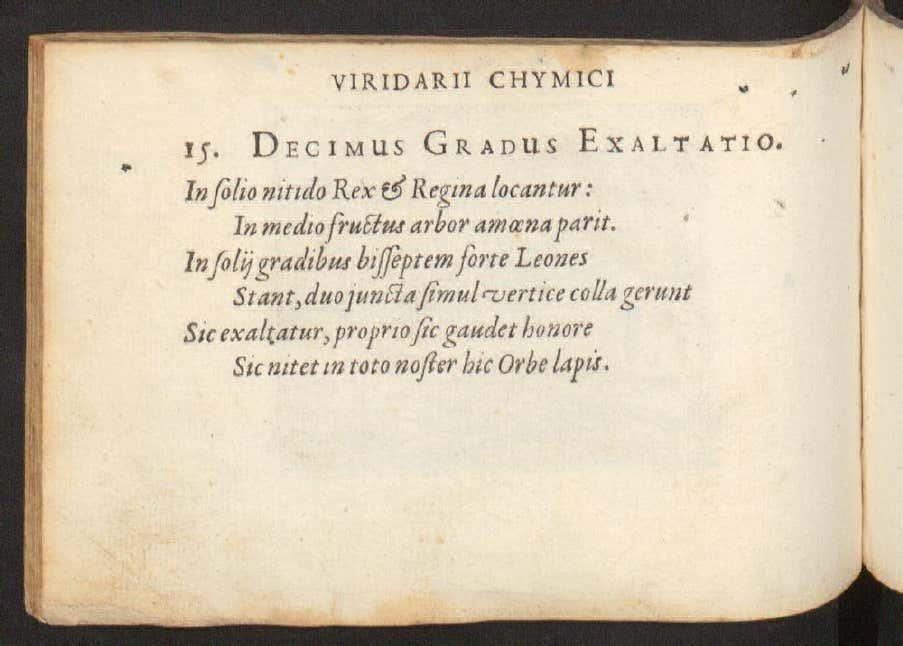 VIRIDARII CHYMICI
15. DECIMUS GRADUS EXALTATIO.
In ſolio nitido Rex & Regina locantur:
In medio fructus arbor amœna parit.
In ſolij gradibus biſſeptem forte Leones
Stant, duo juncta ſimul vertice colla gerunt
Sic exaltatur, proprio ſic gaudet honore
Sic nitet in toto noſter hic Orbe lapis.